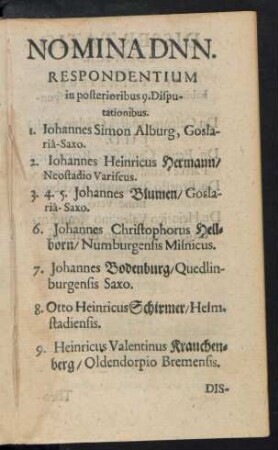 NOMINA DNN.
RESPONDENTIUM
in posterioribus 9. Dispu-
tationibus.
1. Iohannes Simon Alburg, Gosla-
riâ-Saxo.
2. Iohannes Heinricus Hermann/
Neostadio Variscus.
3. 4. 5. Johannes Blumen/ Gosla-
riâ-Saxo.
6. Johannes Christophorus Hell-
born/ Numburgensis Misnicus.
7. Johannes Bodenburg/ Quedlin-
burgensis Saxo.
8. Otto Heinricus Schirmer/ Helm-
stadiensis.
9. Heinricus Valentinus Krauchen-
berg/ Oldendorpio Bremensis.
DIS-